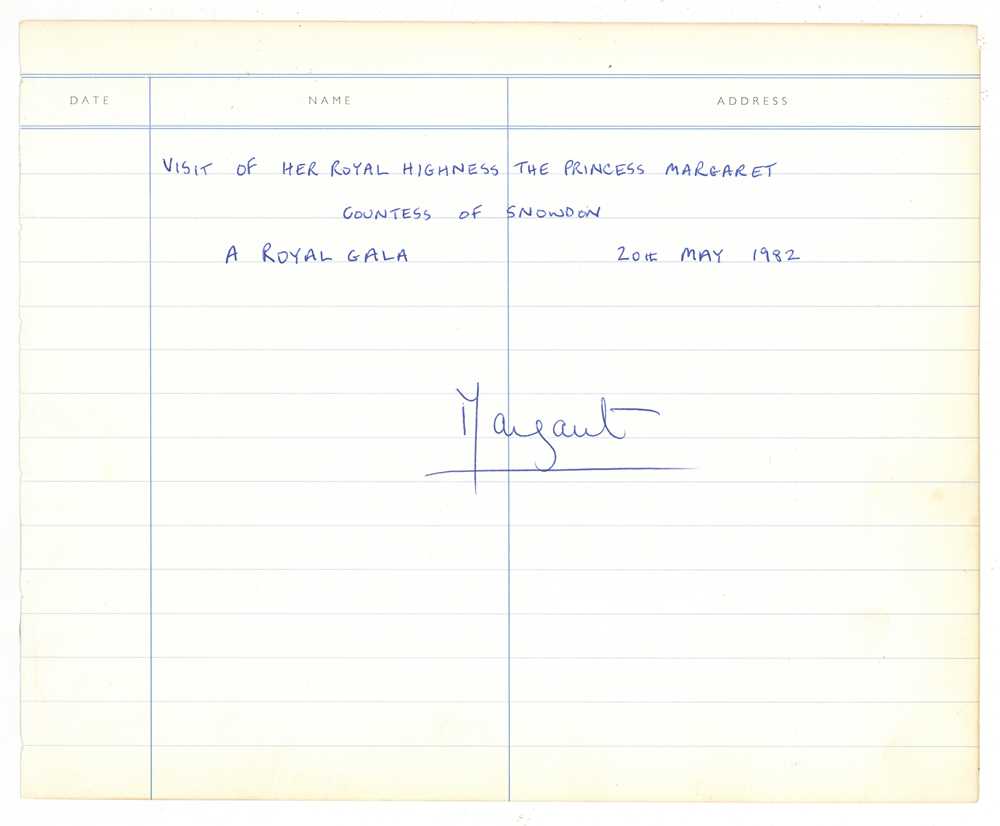 DATE NAME ADDRESS
VISIT OF HER ROYAL HIGHNESS THE PRINCESS MARGARET
COUNTESS OF SNOWDON
A ROYAL GALA 20th MAY 1982
Margaret